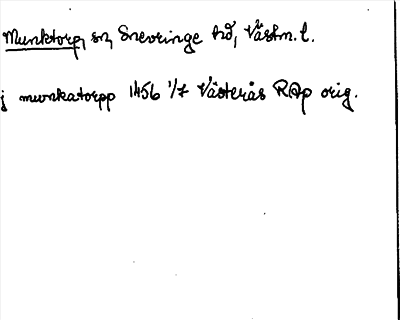 Munktorp, sn, Snevringe hd, Västm. l.
j munkatorpp 1456 1/7 Västerås RAp orig.